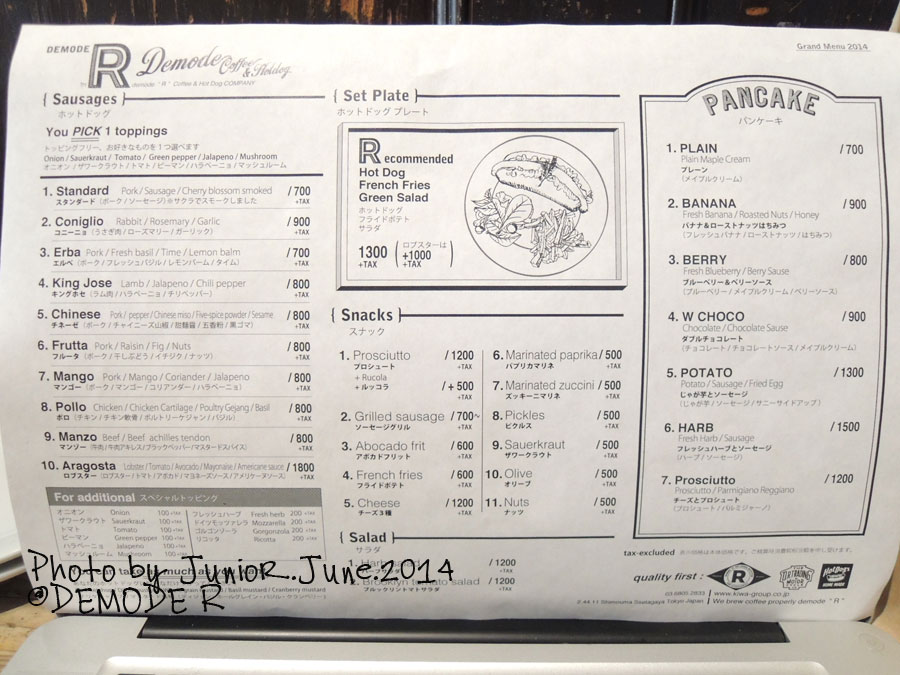 DEMODE
R
Demode Coffee & Hotdog
demode "R" Coffee & Hot Dog COMPANY
Grand Menu 2014
{ Sausages }
ホットドッグ
You PICK 1 toppings
トッピングフリー、お好きなものを1つ選べます
Onion / Sauerkraut / Tomato / Green pepper / Jalapeno / Mushroom
オニオン / ザワークラウト / トマト / ピーマン / ハラペーニョ / マッシュルーム
1. Standard Pork / Sausage / Cherry blossom smoked / 700
スタンダード (ポーク / ソーセージ) ※サクラでスモークしました +TAX
2. Coniglio Rabbit / Rosemary / Garlic / 900
コニーニョ (うさぎ肉 / ローズマリー / ガーリック) +TAX
3. Erba Pork / Fresh basil / Time / Lemon balm / 700
エルベ (ポーク / フレッシュバジル / レモンバーム / タイム) +TAX
4. King Jose Lamb / Jalapeno / Chili pepper / 800
キングホセ (ラム肉 / ハラペーニョ / チリペッパー) +TAX
5. Chinese Pork / pepper / Chinese miso / Five-spice powder / Sesame / 800
チネーゼ (ポーク / チャイニーズ山椒 / 甜麺醤 / 五香粉 / 黒ゴマ) +TAX
6. Frutta Pork / Raisin / Fig / Nuts / 800
フルータ (ポーク / 干しぶどう / イチジク / ナッツ) +TAX
7. Mango Pork / Mango / Coriander / Jalapeno / 800
マンゴー (ポーク / マンゴー / コリアンダー / ハラペーニョ) +TAX
8. Pollo Chicken / Chicken Cartilage / Poultry Gejang / Basil / 800
ポロ (チキン / チキン軟骨 / ポルトリーケジャン / バジル) +TAX
9. Manzo Beef / Beef achilles tendon / 800
マンゾー (牛肉 / 牛肉アキレス / ブラックペッパー / マスタードスパイス) +TAX
10. Aragosta Lobster / Tomato / Avocado / Mayonaise / Americane sauce / 1800
ロブスター (ロブスター / トマト / アボカド / マヨネーズソース / アメリケーヌソース) +TAX
For additional スペシャルトッピング
オニオン Onion 100+TAX
ザワークラウト Sauerkraut 100+TAX
トマト Tomato 100+TAX
ピーマン Green pepper 100+TAX
ハラペーニョ Jalapeno 100+TAX
マッシュルーム Mushroom 100+TAX
フレッシュハーブ Fresh herb 200+TAX
ドイツモッツァレラ Mozzarella 200+TAX
ゴルゴンゾーラ Gorgonzola 200+TAX
リコッタ Ricotta 200+TAX
{ Set Plate }
ホットドッグ プレート
Recommended
Hot Dog
French Fries
Green Salad
ホットドッグ
フライドポテト
サラダ
1300 +TAX
(ロブスターは +1000 +TAX)
{ Snacks }
スナック
1. Prosciutto / 1200
プロシュート +TAX
+ Rucola
+ ルッコラ / + 500
+TAX
2. Grilled sausage / 700~
ソーセージグリル +TAX
3. Abocado frit / 600
アボカドフリット +TAX
4. French fries / 600
フライドポテト +TAX
5. Cheese / 1200
チーズ3種 +TAX
6. Marinated paprika / 500
パプリカマリネ +TAX
7. Marinated zuccini / 500
ズッキーニマリネ +TAX
8. Pickles / 500
ピクルス +TAX
9. Sauerkraut / 500
ザワークラウト +TAX
10. Olive / 500
オリーブ +TAX
11. Nuts / 500
ナッツ +TAX
{ Salad }
サラダ
/ 1200
+TAX
2. Brooklyn tomato salad / 1200
ブルックリントマトサラダ +TAX
PANCAKE
パンケーキ
1. PLAIN / 700
Plain Maple Cream
プレーン
(メイプルクリーム)
2. BANANA / 900
Fresh Banana / Roasted Nuts / Honey
バナナ&ローストナッツはちみつ
(フレッシュバナナ / ローストナッツ / はちみつ)
3. BERRY / 800
Fresh Blueberry / Berry Sause
ブルーベリー&ベリーソース
(ブルーベリー / メイプルクリーム / ベリーソース)
4. W CHOCO / 900
Chocolate / Chocolate Sause
ダブルチョコレート
(チョコレート / チョコレートソース / メイプルクリーム)
5. POTATO / 1300
Potato / Sausage / Fried Egg
じゃが芋とソーセージ
(じゃが芋 / ソーセージ / サニーサイドアップ)
6. HARB / 1500
Fresh Harb / Sausage
フレッシュハーブとソーセージ
(ハーブ / ソーセージ)
7. Prosciutto / 1200
Prosciutto / Parmigiano Reggiano
チーズとプロシュート
(プロシュート / パルミジャーノ)
tax-excluded 表示価格は本体価格です。ご精算時消費税別途申し受けます。
quality first : R
03.6805.2833 | www.kiwa-group.co.jp
2-44-11 Shimouma Setagaya Tokyo Japan | We brew coffee properly demode "R"
Photo by Junior. June 2014
@DEMODE R